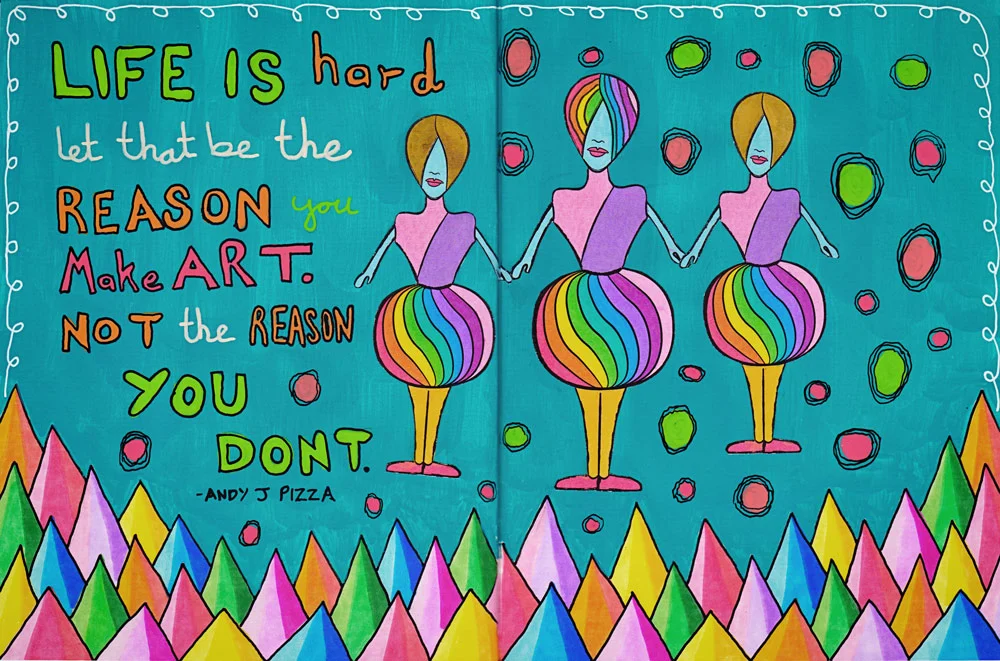 LIFE IS hard
let that be the
REASON you
Make ART.
NOT the REASON
YOU
DONT.
-ANDY J PIZZA